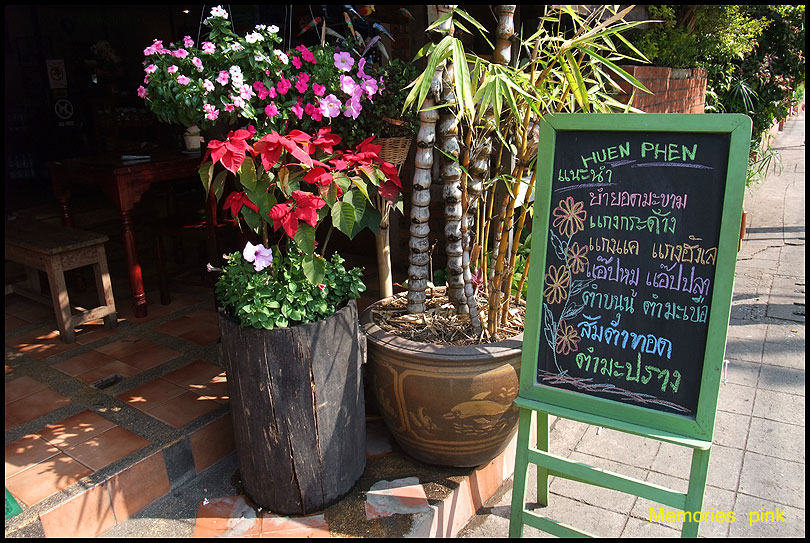 HUEN PHEN
แนะนำ
ยำยอดมะขาม
แกงกระด้าง
แกงแค แกงฮังเล
แอ๊ปหมู แอ๊ปปลา
ตำขนุน ตำมะเขือ
ส้มตำทอด
ตำมะปราง
Memories pink